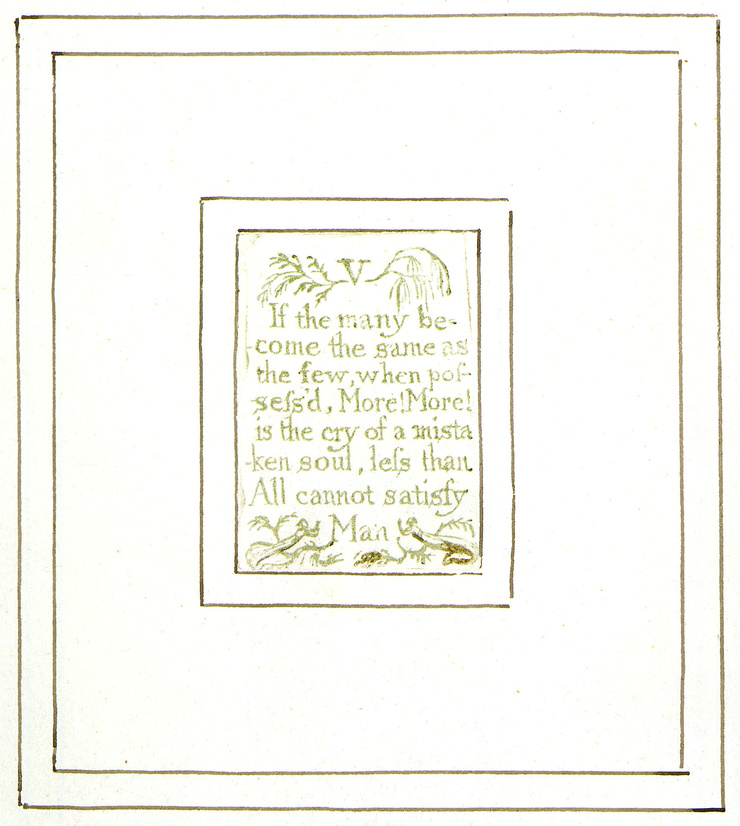 V
If the many be-
-come the same as
the few, when pos-
-seſs'd, More! More!
is the cry of a mista
-ken soul, leſs than
All cannot satisfy
Man